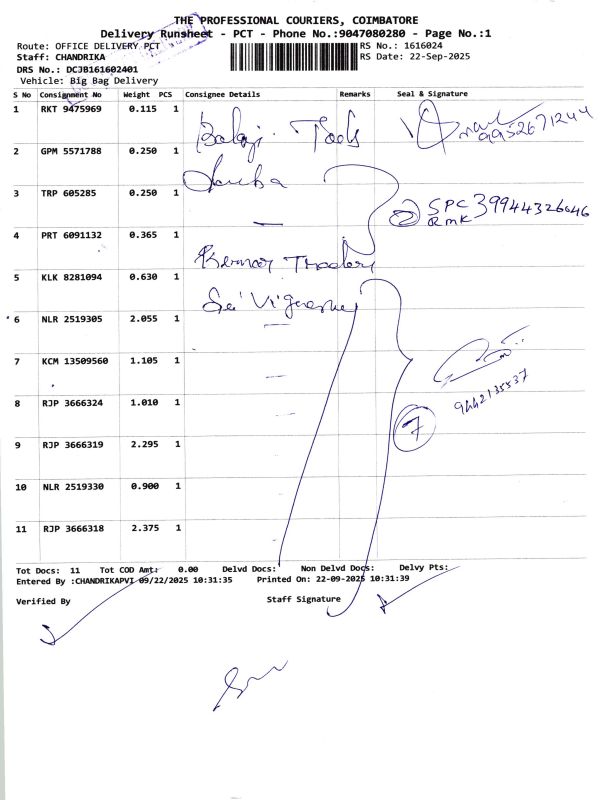 THE PROFESSIONAL COURIERS, COIMBATORE
Delivery Runsheet - PCT - Phone No.:9047080280 - Page No.:1
Route: OFFICE DELIVERY PCT
RS No.: 1616024
Staff: CHANDRIKA
RS Date: 22-Sep-2025
DRS No.: DCJB161602401
Vehicle: Big Bag Delivery
S No Consignment No Weight PCS Consignee Details Remarks Seal & Signature
1 RKT 9475969 0.115 1 Balaji Tools 9952671244
2 GPM 5571788 0.250 1
3 TRP 605285 0.250 1 SPC 39944326646
RMK
4 PRT 6091132 0.365 1 Kumar Traders
5 KLK 8281094 0.630 1 Sai Vignesh
6 NLR 2519305 2.055 1
7 KCM 13509560 1.105 1
9442135537
8 RJP 3666324 1.010 1 7
9 RJP 3666319 2.295 1
10 NLR 2519330 0.900 1
11 RJP 3666318 2.375 1
Tot Docs: 11 Tot COD Amt: 0.00 Delvd Docs: Non Delvd Docs: Delvy Pts:
Entered By :CHANDRIKAPVI 09/22/2025 10:31:35 Printed On: 22-09-2025 10:31:39
Verified By Staff Signature